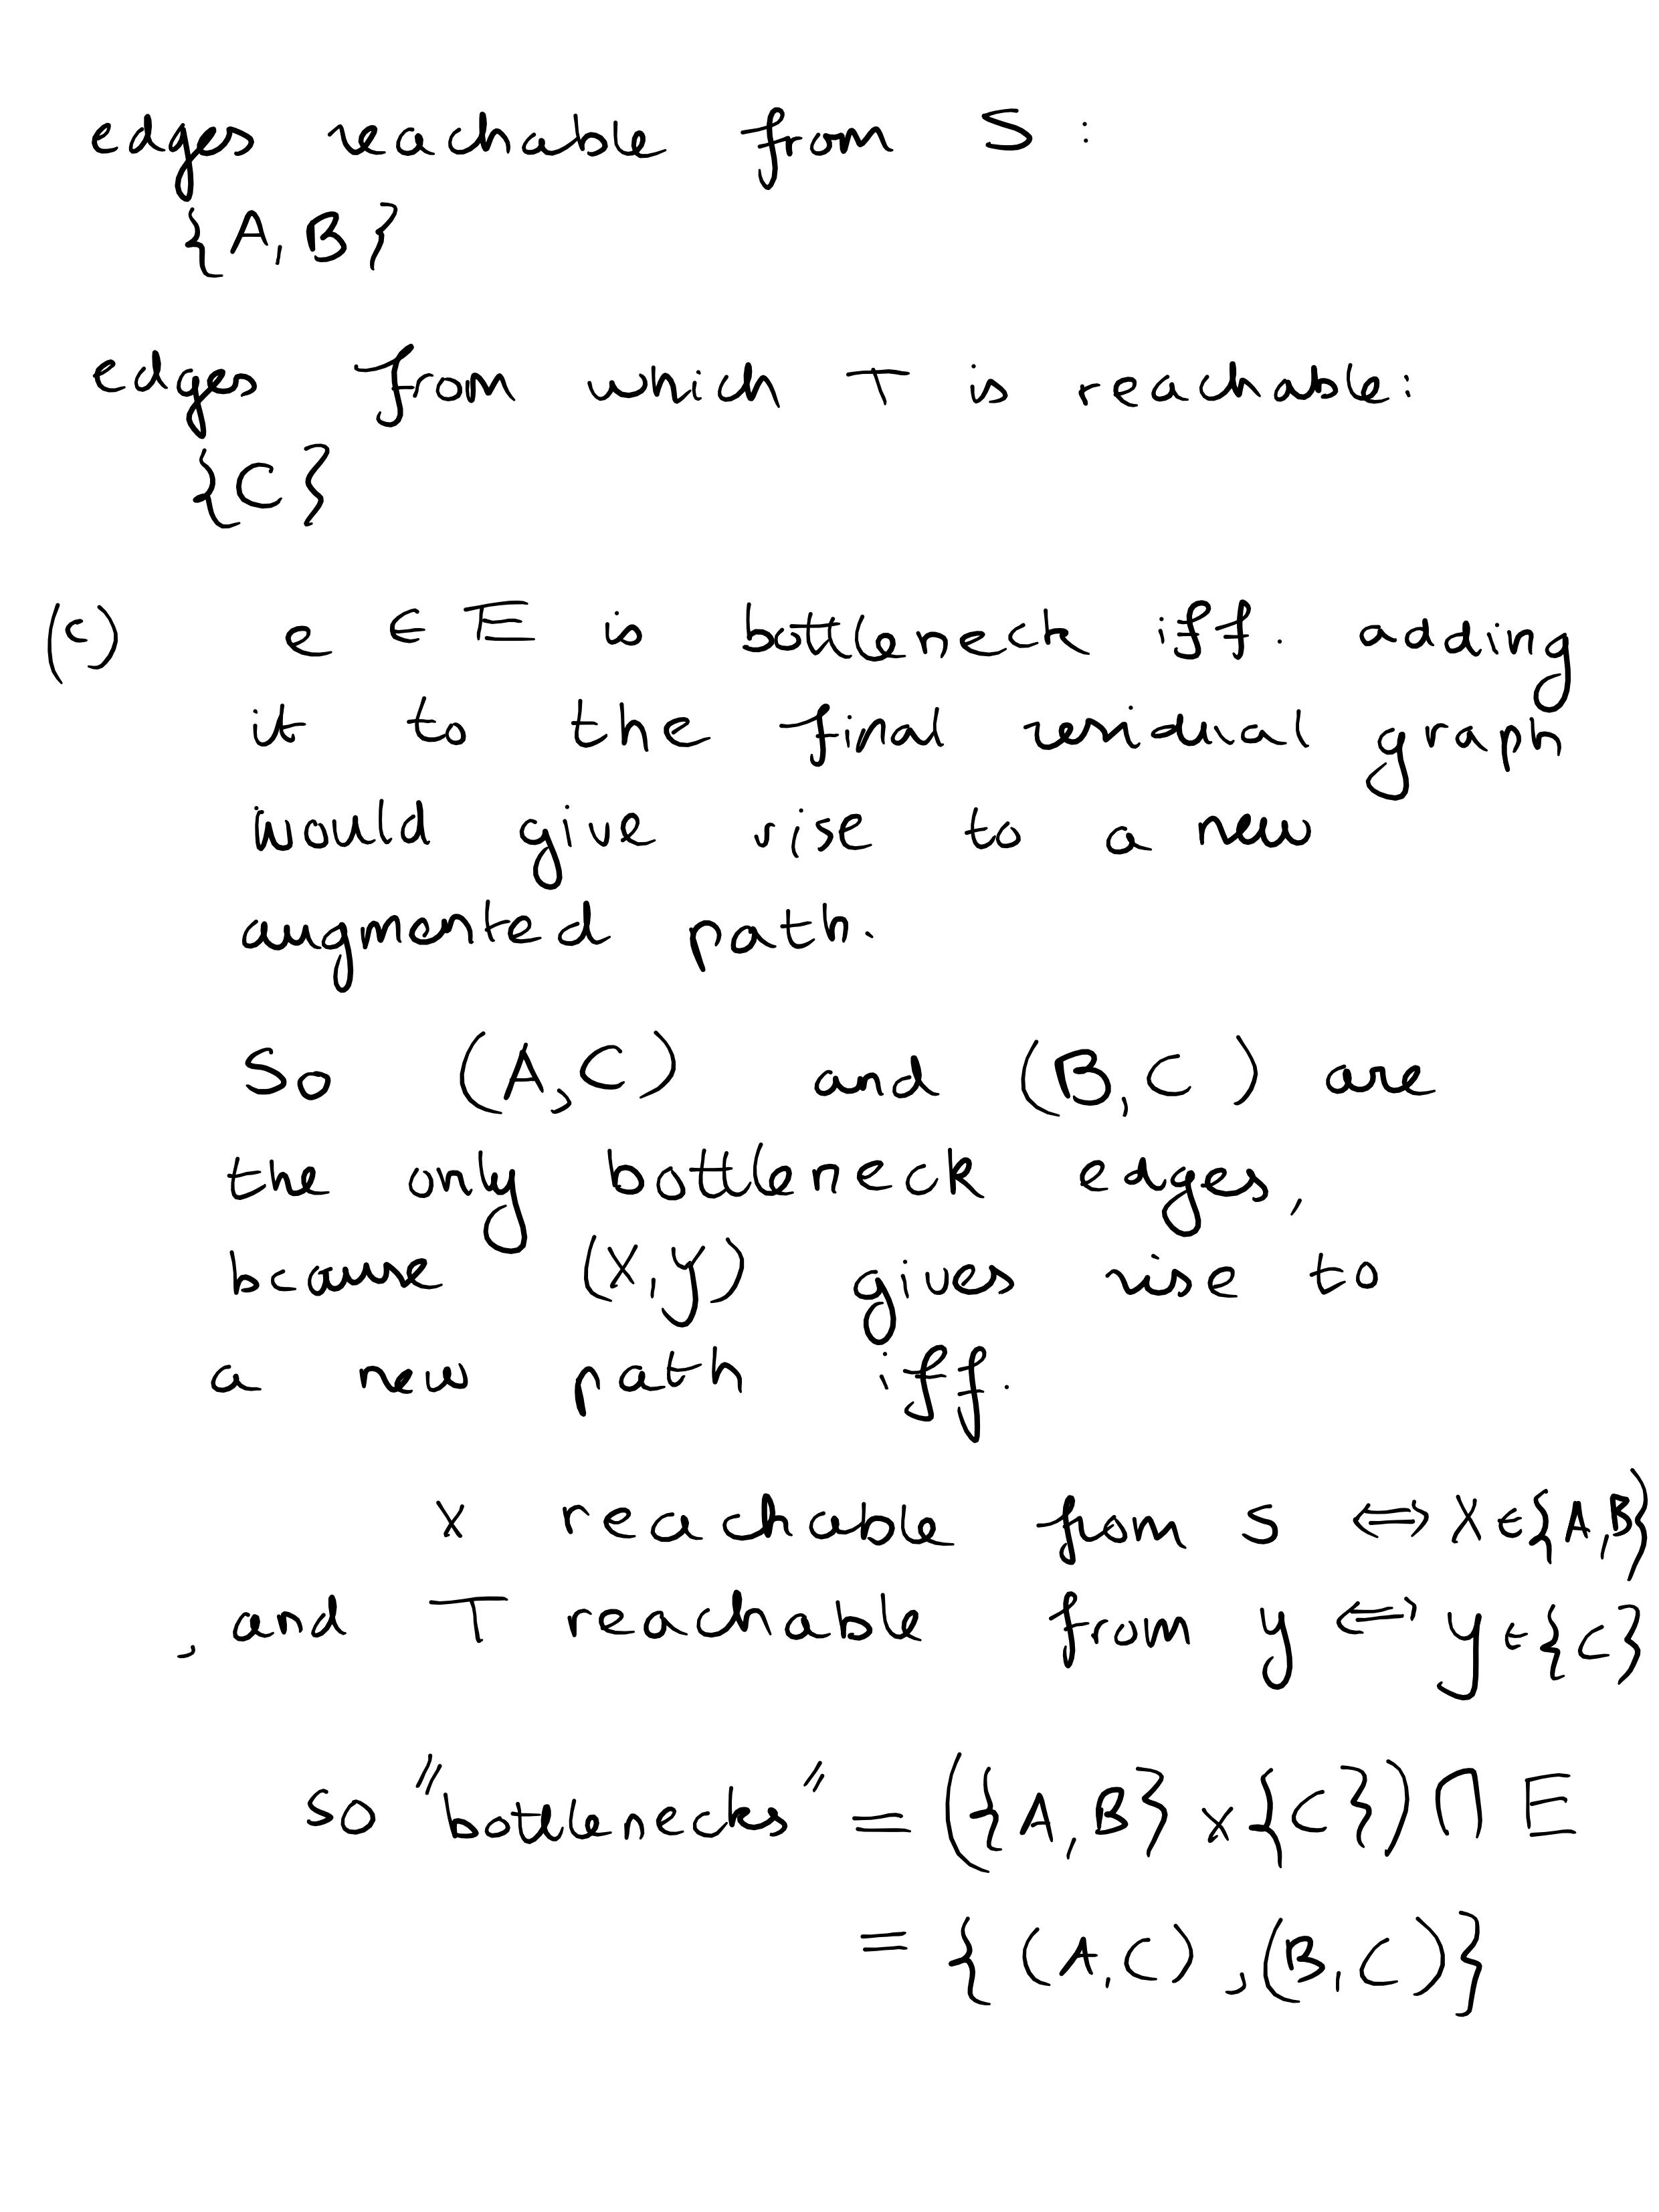 edges reachable from S :
{A, B}
edges from which T is reachable:
{C}
(c) e ∈ E is bottleneck iff. adding
it to the final residual graph
would give rise to a new
augmented path.
So (A, C) and (B, C) are
the only bottleneck edges,
because (X, Y) gives rise to
a new path iff.
X reachable from S ⟺ X ∈ {A, B}
, and T reachable from y ⟺ y ∈ {C}
so "bottlenecks" = ({A, B} × {C}) ∩ E
= { (A, C) , (B, C)}